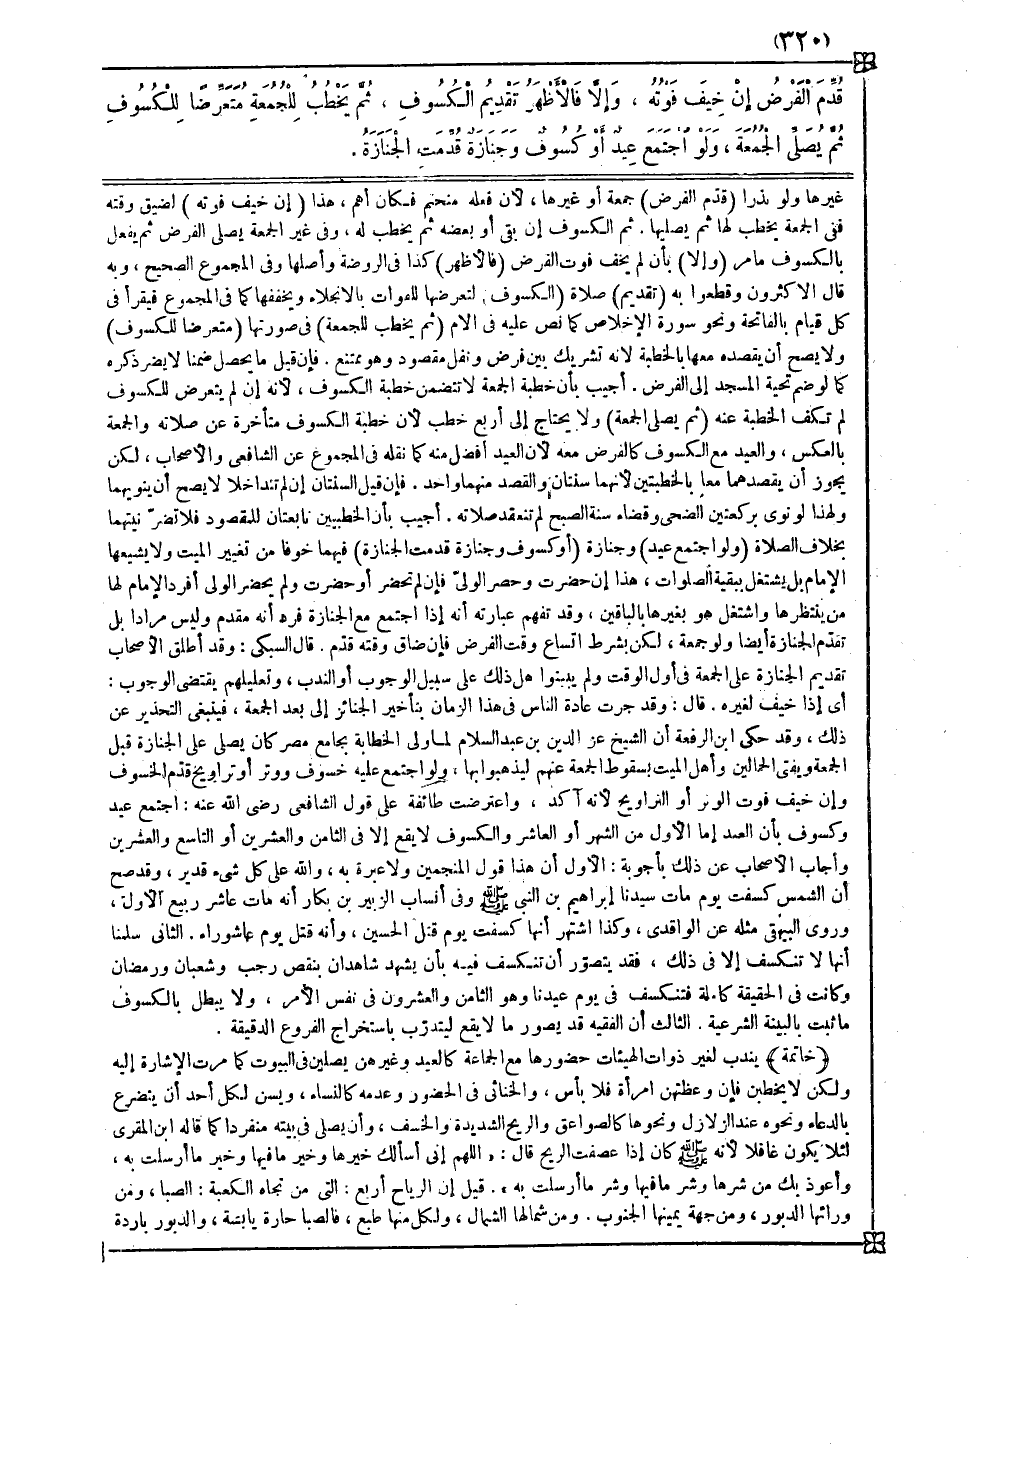 (٣٢٠)
قُدِّمَ الْفَرْضُ إنْ خِيفَ فَوْتُهُ ، وَإِلَّا فَالْأَظْهَرُ تَقْدِيمُ الْكُسُوفِ ، ثُمَّ يَخْطُبُ لِلْجُمُعَةِ مُتَعَرِّضًا لِلْكُسُوفِ
ثُمَّ يُصَلِّى الْجُمُعَةَ ، وَلَوْ اجْتَمَعَ عِيدٌ أَوْ كُسُوفٌ وَجَنَازَةٌ قُدِّمَتِ الْجَنَازَةُ .
غيرها ولو نذرا (قدّم الفرض) جمعة أو غيرها ، لأن فعله متحتم فكان أهم ، هذا (إن خيف فوته) لضيق وقته
ففى الجمعة يخطب لها ثم يصليها . ثم الكسوف إن بقى أو بعضه ثم يخطب له ، وفى غير الجمعة يصلى الفرض ثم يفعل
بالكسوف مامر (وإلا) بأن لم يخف فوت الفرض (فالأظهر) كذا فى الروضة وأصلها وفى المجموع الصحيح ، وبه
قال الأكثرون وقطعوا به (تقديم) صلاة (الكسوف) لتعرضها للفوات بالانجلاء ويخففها كما فى المجموع فيقرأ فى
كل قيام بالفاتحة ونحو سورة الإخلاص كما نص عليه فى الام (ثم يخطب للجمعة) فى صورتها (متعرضا للكسوف)
ولا يصح أن يقصده معها بالخطبة لأنه تشريك بين فرض ونفل مقصود وهو ممتنع . فإن قيل ما يحصل ضمنا لا يضر ذكره
كما لو ضم تحية المسجد إلى الفرض . أجيب بأن خطبة الجمعة لا تتضمن خطبة الكسوف ، لأنه إن لم يتعرض للكسوف
لم تكف الخطبة عنه (ثم يصلى الجمعة) ولا يحتاج إلى أربع خطب لأن خطبة الكسوف متأخرة عن صلاته والجمعة
بالعكس ، والعيد مع الكسوف كالفرض معه لأن العيد أفضل منه كما نقله فى المجموع عن الشافعى والأصحاب ، لكن
يجوز أن يقصدهما معا بالخطبتين لأنهما سنتان والقصد منهما واحد . فإن قيل السنتان إن لم تتداخلا لا يصح أن ينويهما
ولهذا لو نوى بركعتين الضحى وقضاء سنة الصبح لم تنعقد صلاته . أجيب بأن الخطبتين تابعتان للمقصود فلا تضرّ نيتهما
بخلاف الصلاة (ولو اجتمع عيد) وجنازة (أو كسوف وجنازة قدمت الجنازة) فيهما خوفا من تغيير الميت ولا يشيعها
الإمام بل يشتغل ببقية الصلوات ، هذا إن حضرت وحضر الولىّ فإن لم تحضر أو حضرت ولم يحضر الولى أفرد الإمام لها
من ينتظرها واشتغل هو بغيرها بالباقين ، وقد تفهم عبارته أنه إذا اجتمع مع الجنازة فرض أنه مقدم وليس مرادا بل
تقدّم الجنازة أيضا ولو جمعة ، لكن بشرط اتساع وقت الفرض فإن ضاق وقته قدّم . قال السبكى : وقد أطلق الأصحاب
تقديم الجنازة على الجمعة فى أول الوقت ولم يبينوا هل ذلك على سبيل الوجوب أو الندب ، وتعليلهم يقتضى الوجوب :
أى إذا خيف تغيره . قال : وقد جرت عادة الناس فى هذا الزمان بتأخير الجنائز إلى بعد الجمعة ، فينبغى التحذير عن
ذلك ، وقد حكى ابن الرفعة أن الشيخ عز الدين بن عبد السلام لما ولى الخطابة بجامع مصر كان يصلى على الجنازة قبل
الجمعة ويفتى الحمالين وأهل الميت بسقوط الجمعة عنهم ليذهبوا بها ، ولو اجتمع عليه خسوف ووتر أو تراويح قدّم الخسوف
وإن خيف فوت الوتر أو التراويح لأنه آكد ، واعترضت طائفة على قول الشافعى رضى الله عنه : اجتمع عيد
وكسوف بأن العيد إما الأول من الشهر أو العاشر والكسوف لا يقع إلا فى الثامن والعشرين أو التاسع والعشرين
وأجاب الأصحاب عن ذلك بأجوبة : الأول أن هذا قول المنجمين ولا عبرة به ، والله على كل شىء قدير ، وقد صح
أن الشمس كسفت يوم مات سيدنا إبراهيم بن النبى ﷺ وفى أنساب الزبير بن بكار أنه مات عاشر ربيع الأول ،
وروى البيهقى مثله عن الواقدى ، وكذا اشتهر أنها كسفت يوم قتل الحسين ، وأنه قتل يوم عاشوراء . الثانى سلمنا
أنها لا تنكسف إلا فى ذلك ، فقد يتصوّر أن تنكسف فيه بأن يشهد شاهدان بنقص رجب وشعبان ورمضان
وكانت فى الحقيقة كاملة فتنكسف فى يوم عيدنا وهو الثامن والعشرون فى نفس الأمر ، ولا يبطل بالكسوف
ما ثبت بالبينة الشرعية . الثالث أن الفقيه قد يصور ما لا يقع ليتدرّب باستخراج الفروع الدقيقة .
(خاتمة) يندب لغير ذوات الهيئات حضورها مع الجماعة كالعيد وغيرهن يصلين فى البيوت كما مرت الإشارة إليه
ولكن لا يخطبن فإن وعظتهن امرأة فلا بأس ، والخناثى فى الحضور وعدمه كالنساء ، ويسن لكل أحد أن يتضرع
بالدعاء ونحوه عند الزلازل ونحوها كالصواعق والريح الشديدة والخسف ، وأن يصلى فى بيته منفردا كما قاله ابن المقرى
لئلا يكون غافلا لأنه ﷺ كان إذا عصفت الريح قال : « اللهم إنى أسألك خيرها وخير مافيها وخير ما أرسلت به ،
وأعوذ بك من شرها وشر مافيها وشر ما أرسلت به » . قيل إن الرياح أربع : التى من تجاه الكعبة : الصبا ، ومن
ورائها الدبور ، ومن جهة يمينها الجنوب . ومن شمالها الشمال ، ولكل منها طبع ، فالصبا حارة يابسة ، والدبور باردة